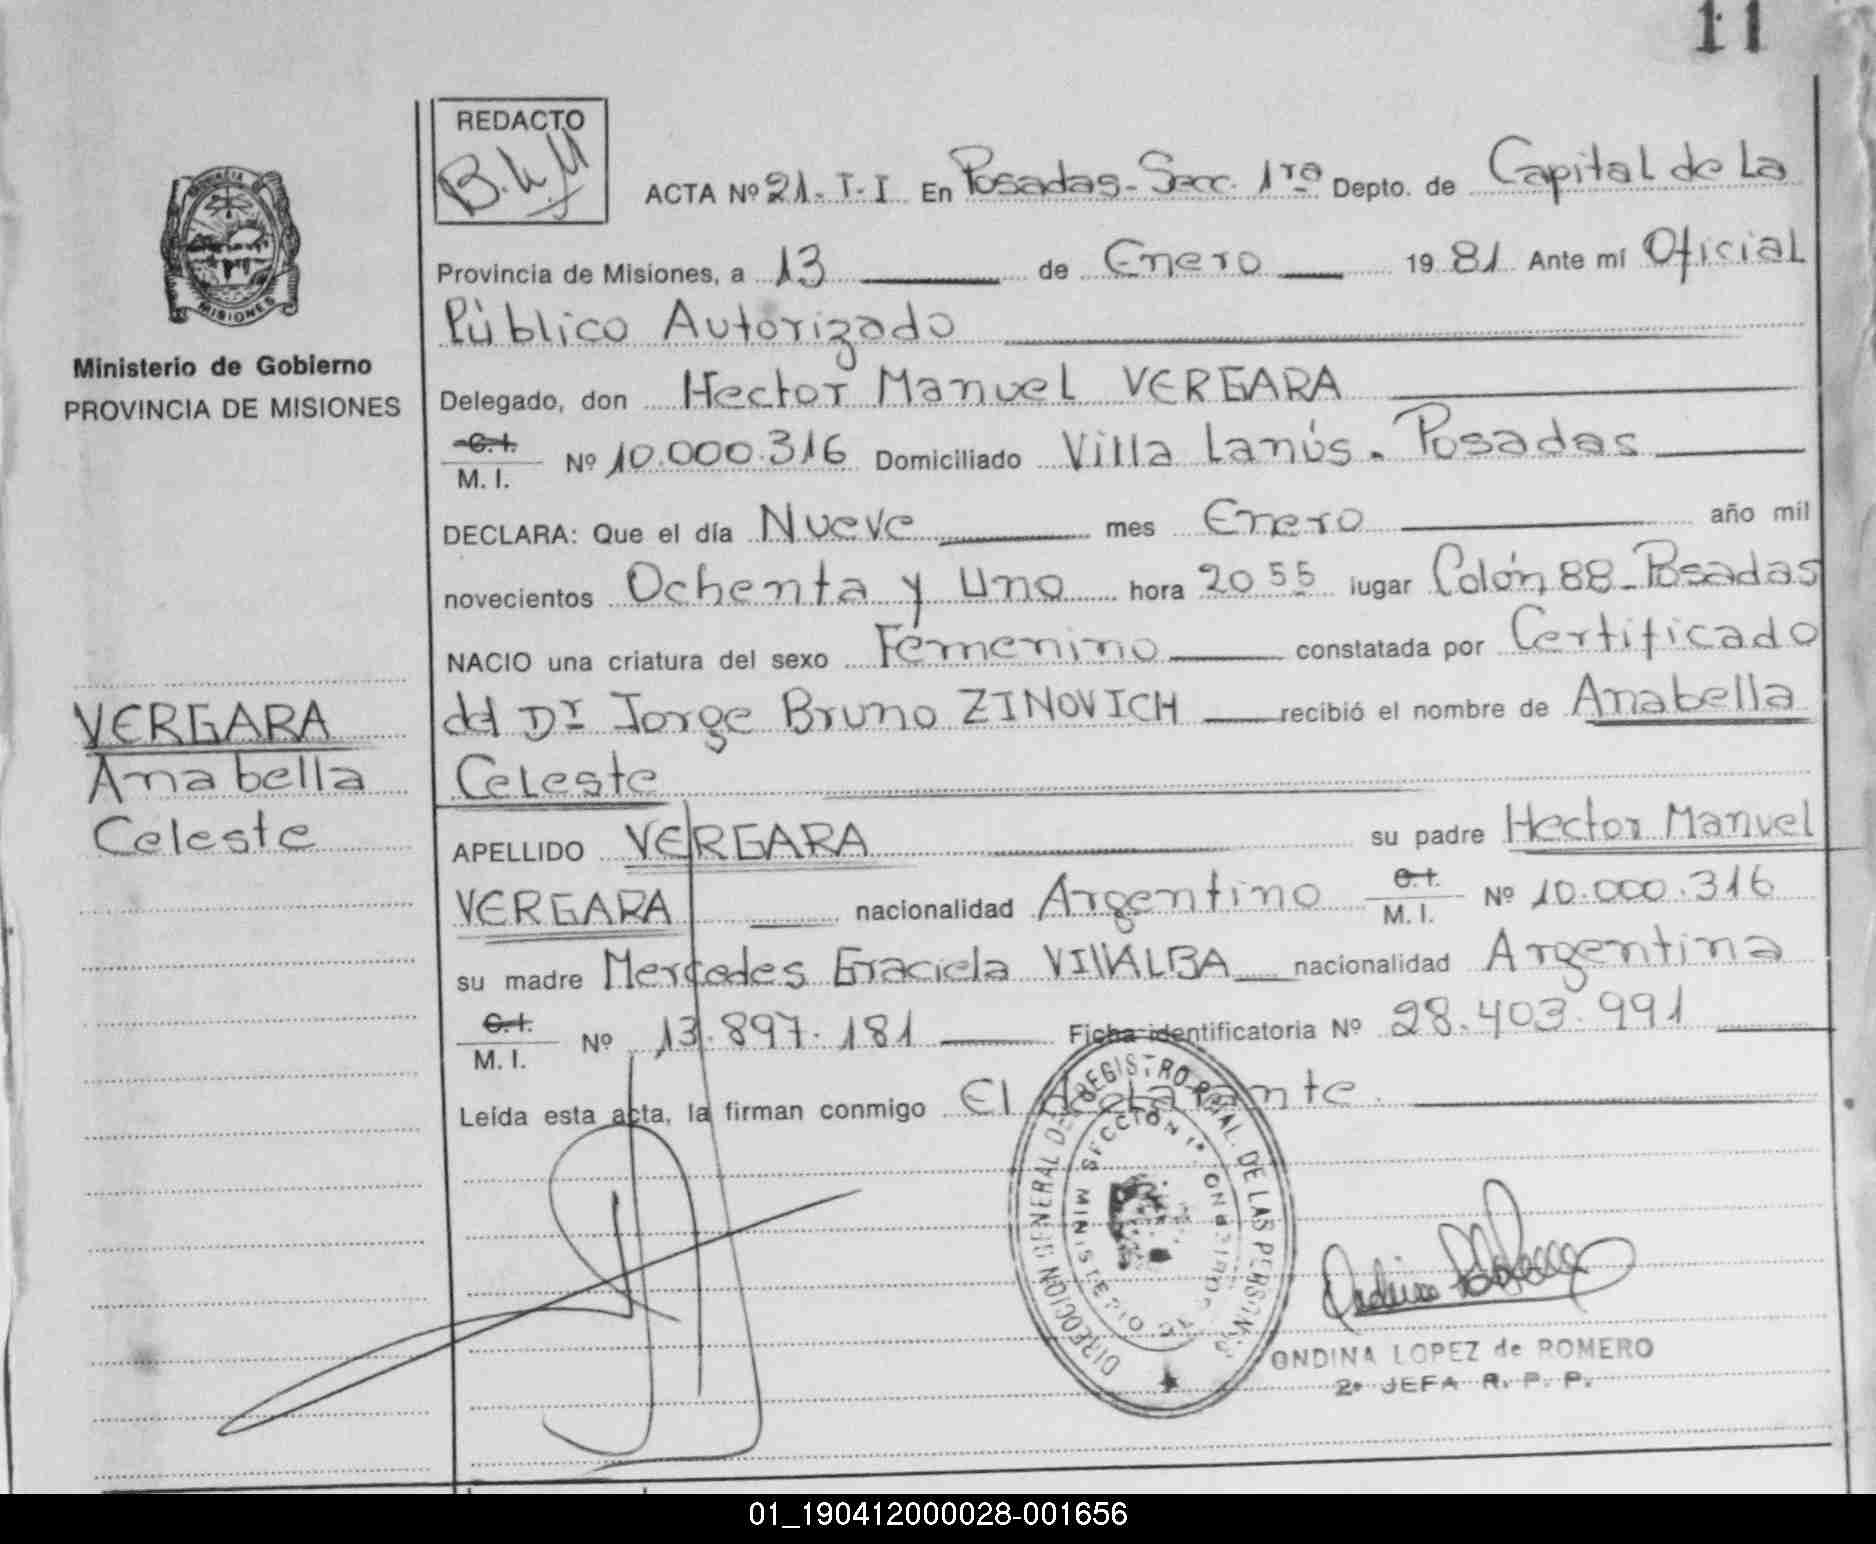 11
REDACTO
B.L.M
ACTA Nº 21. T. I En Posadas. Secc. 1ra Depto. de Capital de La
Provincia de Misiones, a 13 de Enero 1981 Ante mí Oficial
Público Autorizado
Delegado, don Hector Manuel VERGARA
C.I.
M. I. Nº 10.000.316 Domiciliado Villa Lanús. Posadas
DECLARA: Que el día Nueve mes Enero año mil
novecientos Ochenta y Uno hora 20 55 lugar Colón 88 - Posadas
NACIO una criatura del sexo Femenino constatada por Certificado
del Dr Jorge Bruno ZINOVICH recibió el nombre de Anabella
Celeste
APELLIDO VERGARA su padre Hector Manuel
VERGARA nacionalidad Argentino C.I. M. I. Nº 10.000.316
su madre Mercedes Graciela VIllALBA nacionalidad Argentina
C.I.
M. I. Nº 13.897.181 Ficha identificatoria Nº 28.403.991
Leída esta acta, la firman conmigo El declarante.
PROVINCIA DE
MISIONES
Ministerio de Gobierno
PROVINCIA DE MISIONES
VERGARA
Anabella
Celeste
DIRECCION GENERAL DEL REGISTRO PCIAL. DE LAS PERSONAS
SECCION 1ª
MINISTERIO DE GOBIERNO
ONDINA LOPEZ de ROMERO
2ª JEFA R. P. P.
01_190412000028-001656